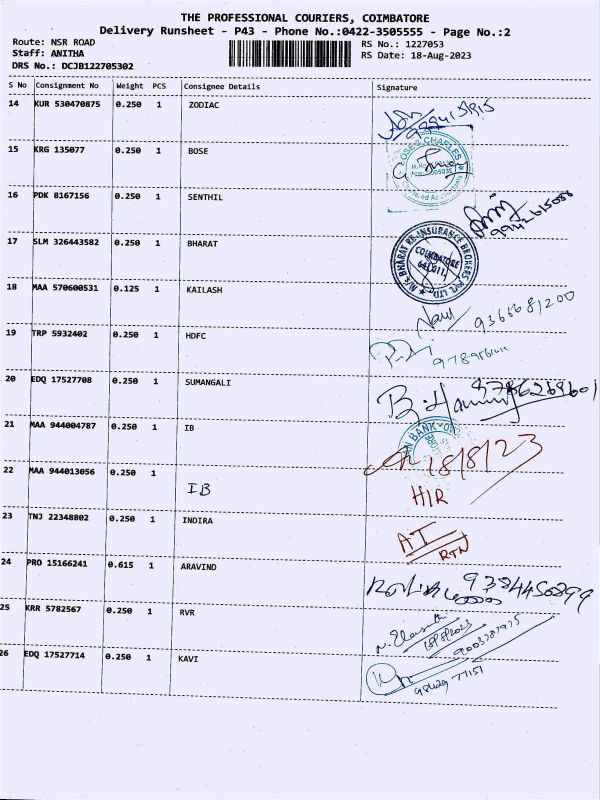 THE PROFESSIONAL COURIERS, COIMBATORE
Delivery Runsheet - P43 - Phone No.:0422-3505555 - Page No.:2
Route: NSR ROAD
RS No.: 1227053
Staff: ANITHA
RS Date: 18-Aug-2023
DRS No.: DCJB122705302
S No Consignment No Weight PCS Consignee Details Signature
14 KUR 530470875 0.250 1 ZODIAC
15 KRG 135077 0.250 1 BOSE
16 PDK 8167156 0.250 1 SENTHIL
17 SLM 326443582 0.250 1 BHARAT
M/s BHARAT RE-INSURANCE BROKERS PVT. LTD.
COIMBATORE
641 011
18 MAA 570600531 0.125 1 KAILASH
9365681200
19 TRP 5932402 0.250 1 HDFC
20 EDQ 17527708 0.250 1 SUMANGALI
21 MAA 944004787 0.250 1 IB
18/8/23
22 MAA 944013056 0.250 1 IB
HIR
23 TNJ 22348802 0.250 1 INDIRA
AI
RTN
24 PRO 15166241 0.615 1 ARAVIND
9384450899
25 KRR 5782567 0.250 1 RVR
18/8/2023
26 EDQ 17527714 0.250 1 KAVI
98429 77151